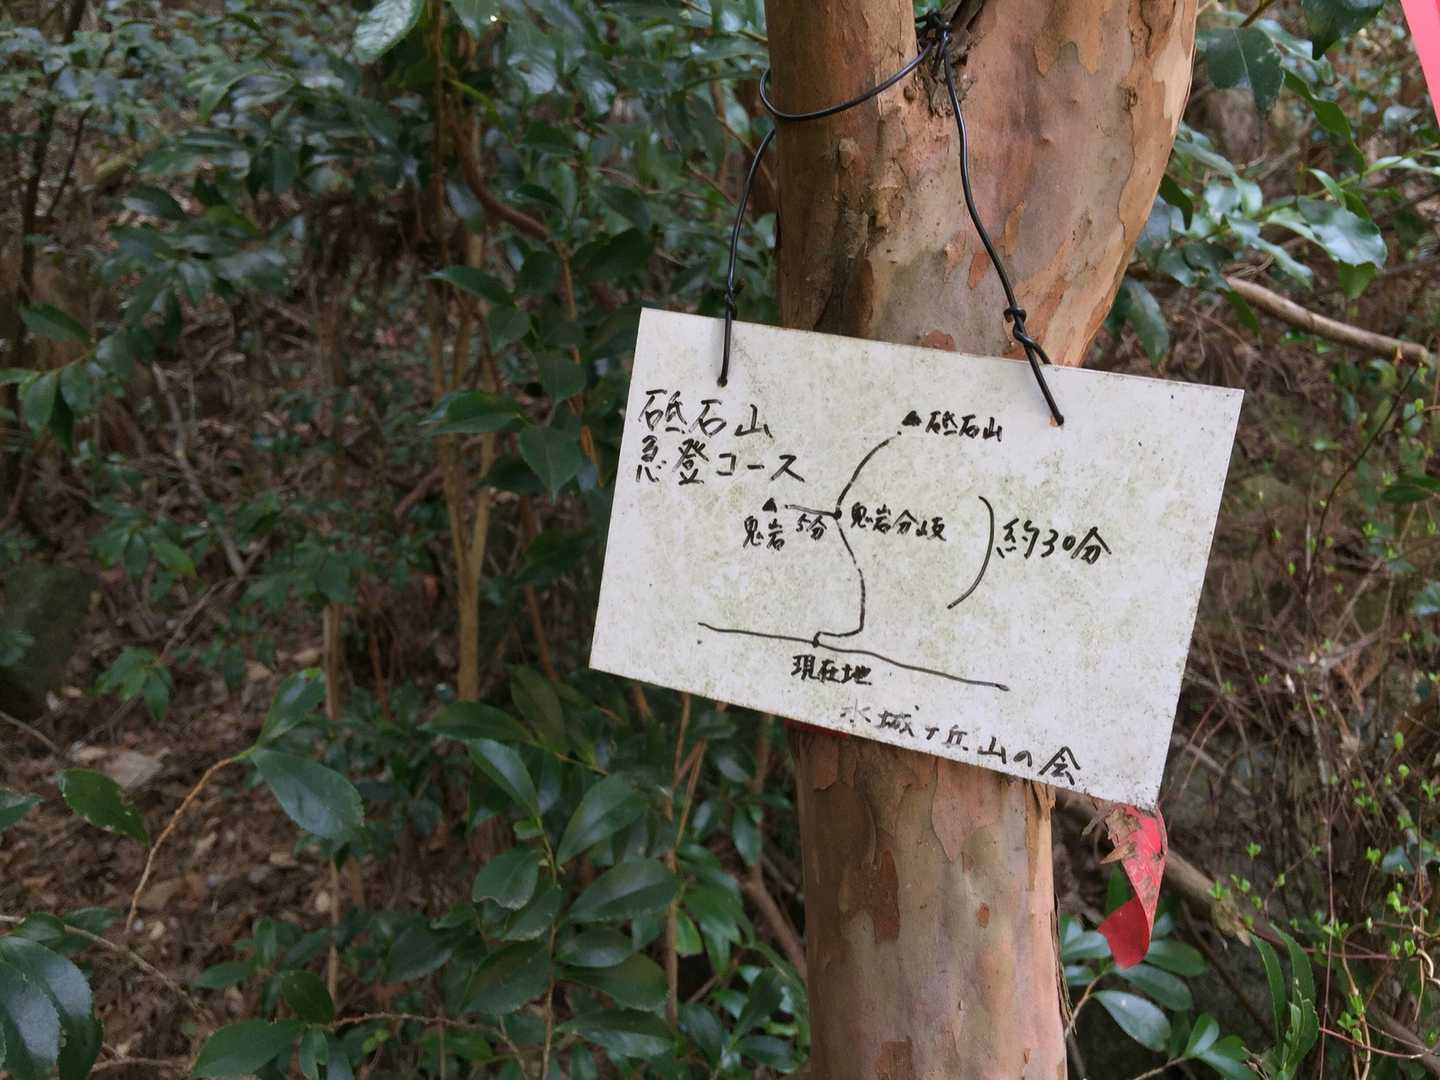 砥石山
急登コース
砥石山
鬼岩 5分
鬼岩分岐
約30分
現在地
水城ヶ丘山の会